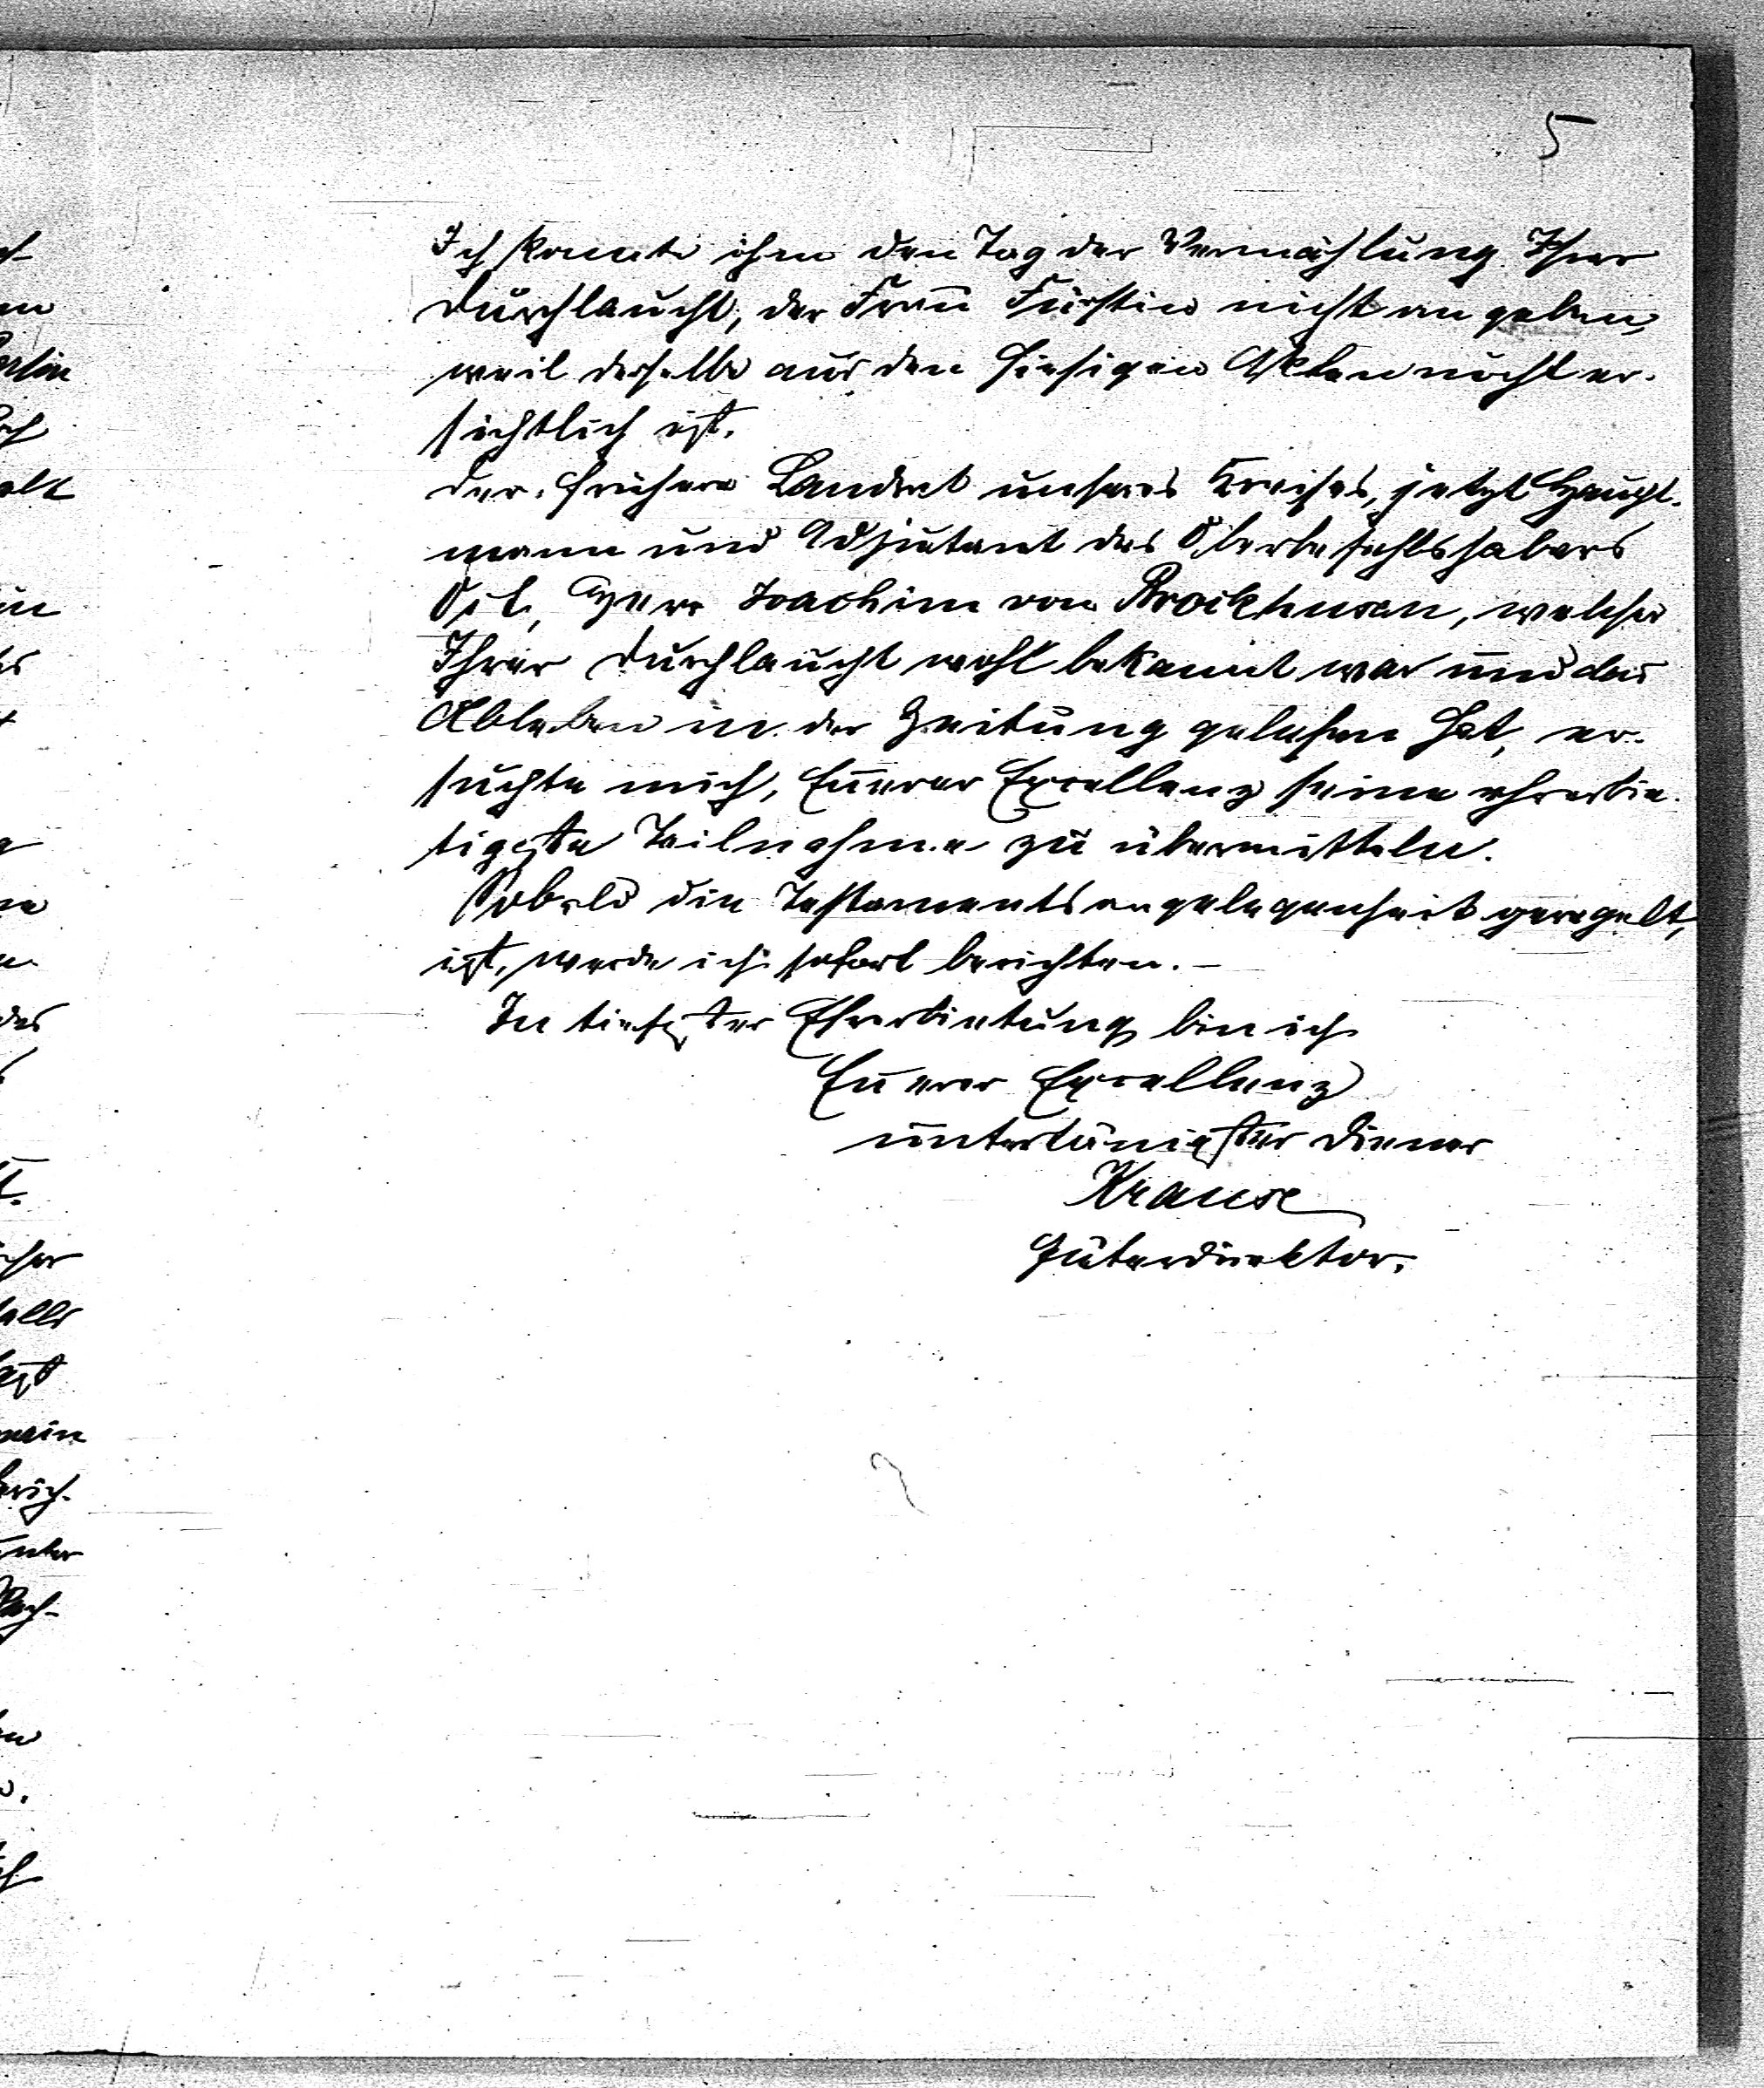 5
Ich konnte ihm den Tag der Vermählung Ihrer
Durchlaucht, der Frau Fürstin nicht angeben,
weil derselbe aus den hiesigen Akten nicht er-
sichtlich ist.
Der frühere Landrat unseres Kreises, jetzt Haupt-
mann und Adjutant des Oberbefehlshabers
Ost, Herr Joachim von Brockhusen, welcher
Ihrer Durchlaucht wohl bekannt war und das
Ableben in der Zeitung gelesen hat, er-
suchte mich, Euerer Excellenz seine ehrerbie-
tigste Teilnahme zu übermitteln.
Sobald die Testamentsangelegenheit geregelt,
ist, werde ich sofort berichten. –
In tiefster Ehrerbietung bin ich
Euerer Excellenz
untertänigster Diener
Krause
Güterdirektor.